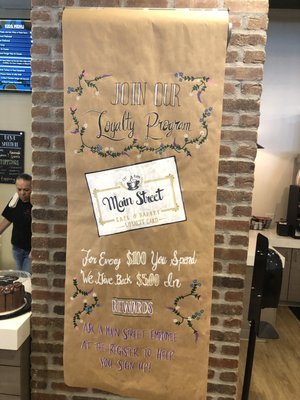 KIDS MENU
JOIN OUR
Loyalty Program
Main Street
CAFE & BAKERY
LOYALTY CARD
For Every $100 You Spend
We Give Back $5.00 In
REWARDS
ASK A MAIN STREET EMPLOYEE
AT THE REGISTER TO HELP
YOU SIGN UP!